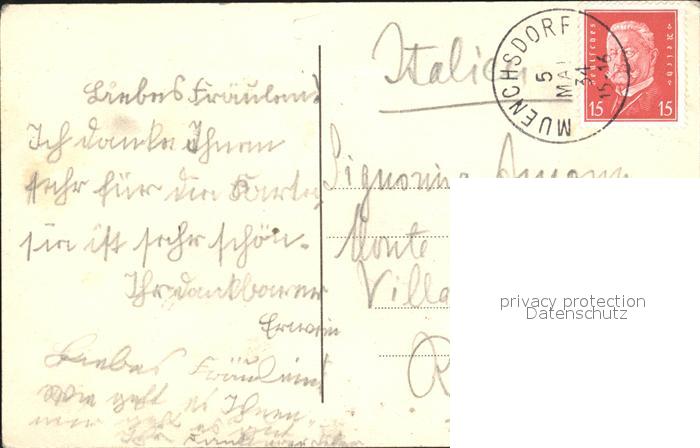 Liebes Fräulein!
Ich danke Ihnen
sehr für die Karte,
sie ist sehr schön.
Ihr dankbarer
Erwin
Liebes Fräulein!
Wie geht es Ihnen
mir geht es gut
Ihr dankbarer
Italien
MUENCHSDORF
5
MAI
34
15-16
Deutsches Reich
15 15
Signorina
Monte
Villa
R
privacy protection
Datenschutz